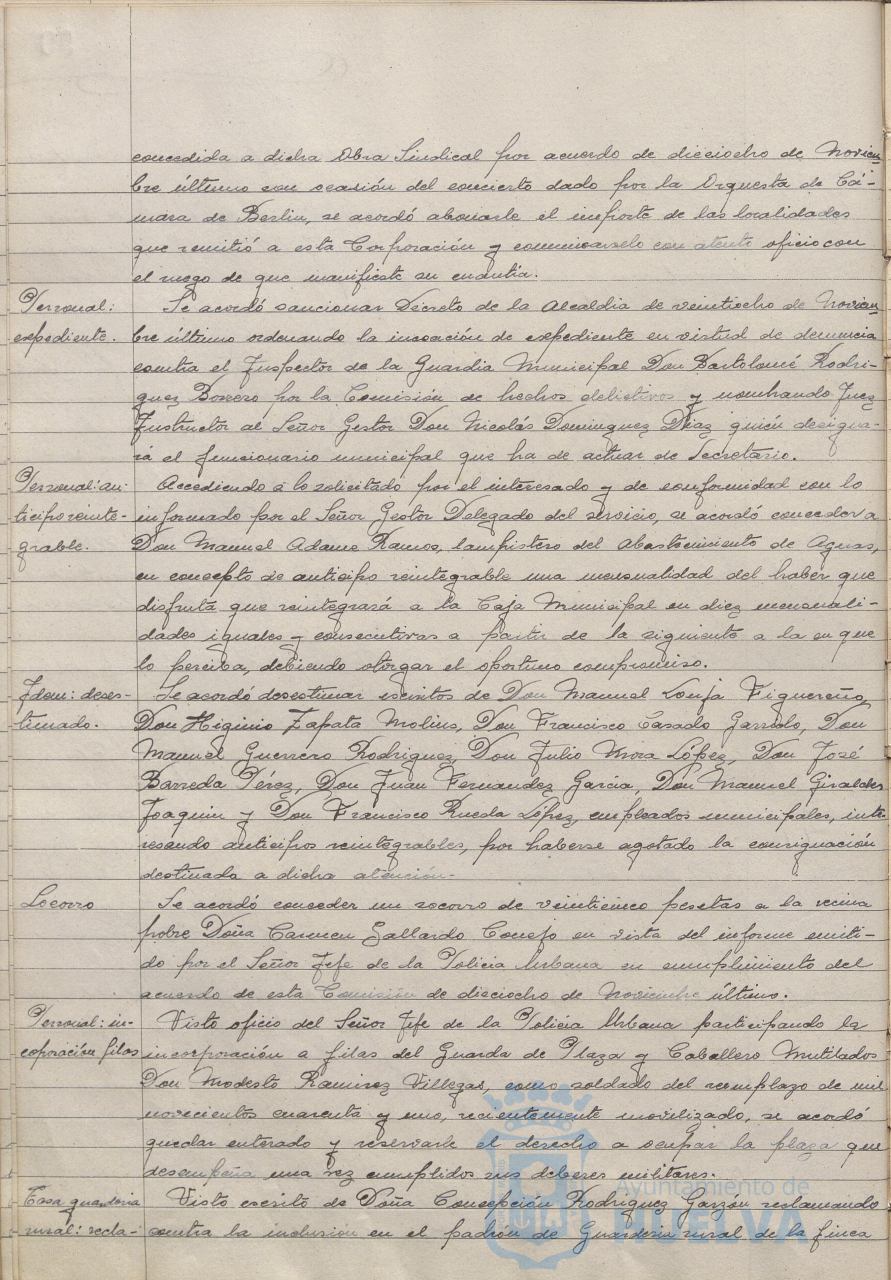 concedida a dicha Obra Sindical por acuerdo de dieciocho de Noviem-
bre último con ocasión del concierto dado por la Orquesta de Cá-
mara de Berlin, se acordó abonarle el importe de las localidades
que remitió a esta Corporación y comunicarselo con atento oficio con
el ruego de que manifieste su cuantia.
Personal:
expediente.
Se acordó sancionar Decreto de la Alcaldia de veintiocho de Noviem-
bre último ordenando la incoación de expediente en virtud de denuncia
contra el Inspector de la Guardia Municipal Don Bartolomé Rodri-
guez Borrero por la Comisión de hechos delictivos y nombrando Juez
Instructor al Señor Gestor Don Nicolás Dominguez Diaz quién designa-
rá el funcionario municipal que ha de actuar de Secretario.
Personal: an-
ticipo reinte-
grable.
Accediendo a lo solicitado por el interesado y de conformidad con lo
informado por el Señor Gestor Delegado del servicio, se acordó conceder a
Don Manuel Adame Ramos, lampistero del Abastecimiento de Aguas,
en concepto de anticipo reintegrable una mensualidad del haber que
disfruta que reintegrará a la Caja Municipal en diez mensuali-
dades iguales y consecutivas a partir de la siguiente a la en que
lo perciba, debiendo otorgar el oportuno compromiso.
Idem: deses-
timado.
Se acordó desestimar escritos de Don Manuel Lonja Figuereño,
Don Higinio Zapata Molins, Don Francisco Casado Garrido, Don
Manuel Guerrero Rodriguez, Don Julio Mora López, Don José
Barreda Pérez, Don Juan Fernandez Garcia, Don Manuel Giraldez
Joaquin y Don Francisco Rueda López, empleados municipales, inte-
resando anticipos reintegrables, por haberse agotado la consignación
destinada a dicha atención.-
Socorro
Se acordó conceder un socorro de veinticinco pesetas a la vecina
pobre Doña Carmen Gallardo Conejo en vista del informe emiti-
do por el Señor Jefe de la Policia Urbana en cumplimiento del
acuerdo de esta Comisión de dieciocho de Noviembre último.
Personal: in-
coporación filas
Visto oficio del Señor Jefe de la Policia Urbana participando la
incorporación a filas del Guarda de Plaza y Caballero Mutilados
Don Modesto Ramirez Villegas, como soldado del reemplazo de mil
novecientos cuarenta y uno, recientemente movilizado, se acordó
quedar enterado y reservarle el derecho a ocupar la plaza que
desempeña una vez cumplidos sus deberes militares.
Tasa guarderia
rural: recla-
Visto escrito de Doña Concepción Rodriguez Garzón reclamando
contra la inclusión en el padrón de Guarderia rural de la finca
Ayuntamiento de
HUELVA